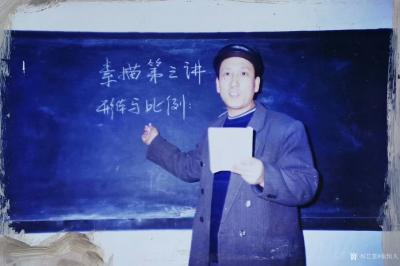 素描第三讲
形体与比例：